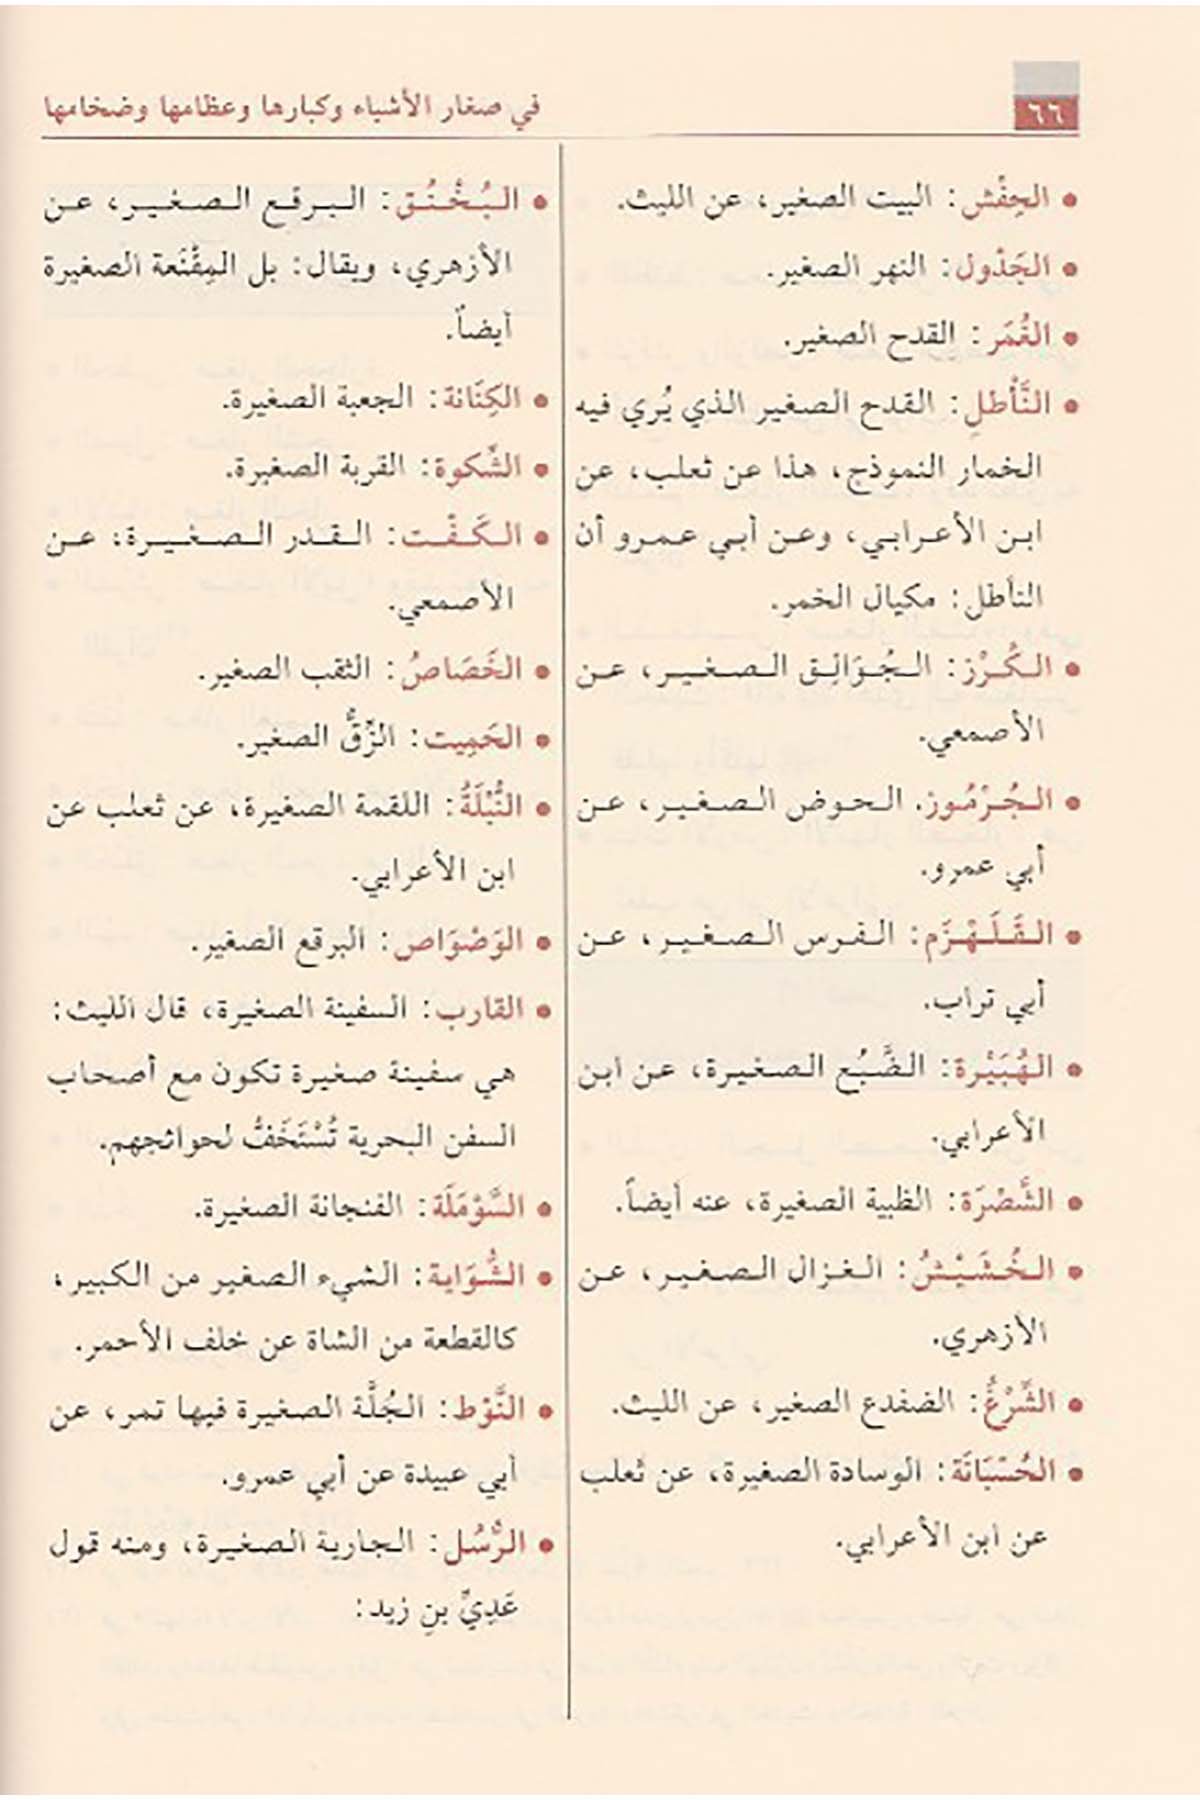 ٦٦
في صغار الأشياء وكبارها وعظامها وضخامها
• الحِفْش: البيت الصغير، عن الليث.
• الجَدْول: النهر الصغير.
• الغُمَر: القدح الصغير.
• النَّأْطل: القدح الصغير الذي يُري فيه
الخمار النموذج، هذا عن ثعلب، عن
ابن الأعرابي، وعن أبي عمرو أن
النأطل: مكيال الخمر.
• الكُرْز: الجُوَالِق الصغير، عن
الأصمعي.
• الجُرْمُوز. الحوض الصغير، عن
أبي عمرو.
• القَلَهْزَم: الفرس الصغير، عن
أبي تراب.
• الهُبَيْرة: الضَّبُع الصغيرة، عن ابن
الأعرابي.
• الشَّصْرَة: الظبية الصغيرة، عنه أيضاً.
• الخُشَيْشُ: الغزال الصغير، عن
الأزهري.
• الشَّرْغُ: الضفدع الصغير، عن الليث.
• الحُسْبَانَة: الوسادة الصغيرة، عن ثعلب
عن ابن الأعرابي.
• البُخْنُق: البرقع الصغير، عن
الأزهري، ويقال: بل المِقْنَعة الصغيرة
أيضاً.
• الكِنَانة: الجعبة الصغيرة.
• الشَّكوة: القربة الصغيرة.
• الكَفْت: القدر الصغيرة، عن
الأصمعي.
• الخَصَاصُ: الثقب الصغير.
• الحَمِيت: الزِّقُّ الصغير.
• النُّبْلَةُ: اللقمة الصغيرة، عن ثعلب عن
ابن الأعرابي.
• الوَصْوَاص: البرقع الصغير.
• القارب: السفينة الصغيرة، قال الليث:
هي سفينة صغيرة تكون مع أصحاب
السفن البحرية تُسْتَخَفُّ لحوائجهم.
• السَّوْمَلَة: الفنجانة الصغيرة.
• الشُّوَاية: الشيء الصغير من الكبير،
كالقطعة من الشاة عن خلف الأحمر.
• النَّوْط: الجُلَّة الصغيرة فيها تمر، عن
أبي عبيدة عن أبي عمرو.
• الرُّسُل: الجارية الصغيرة، ومنه قول
عَدِيِّ بنِ زيد: